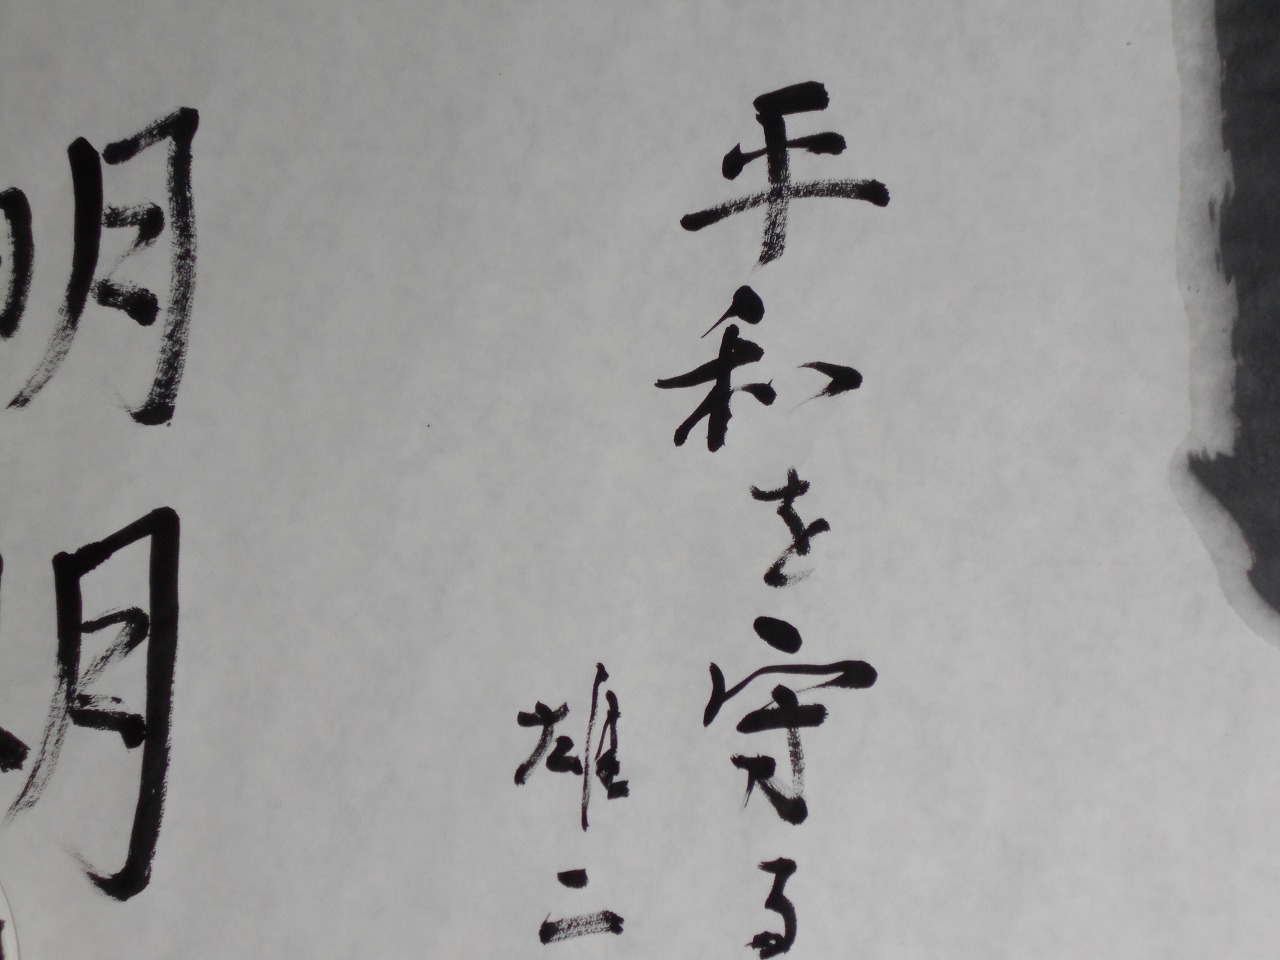 平和を守る
雄二
明月